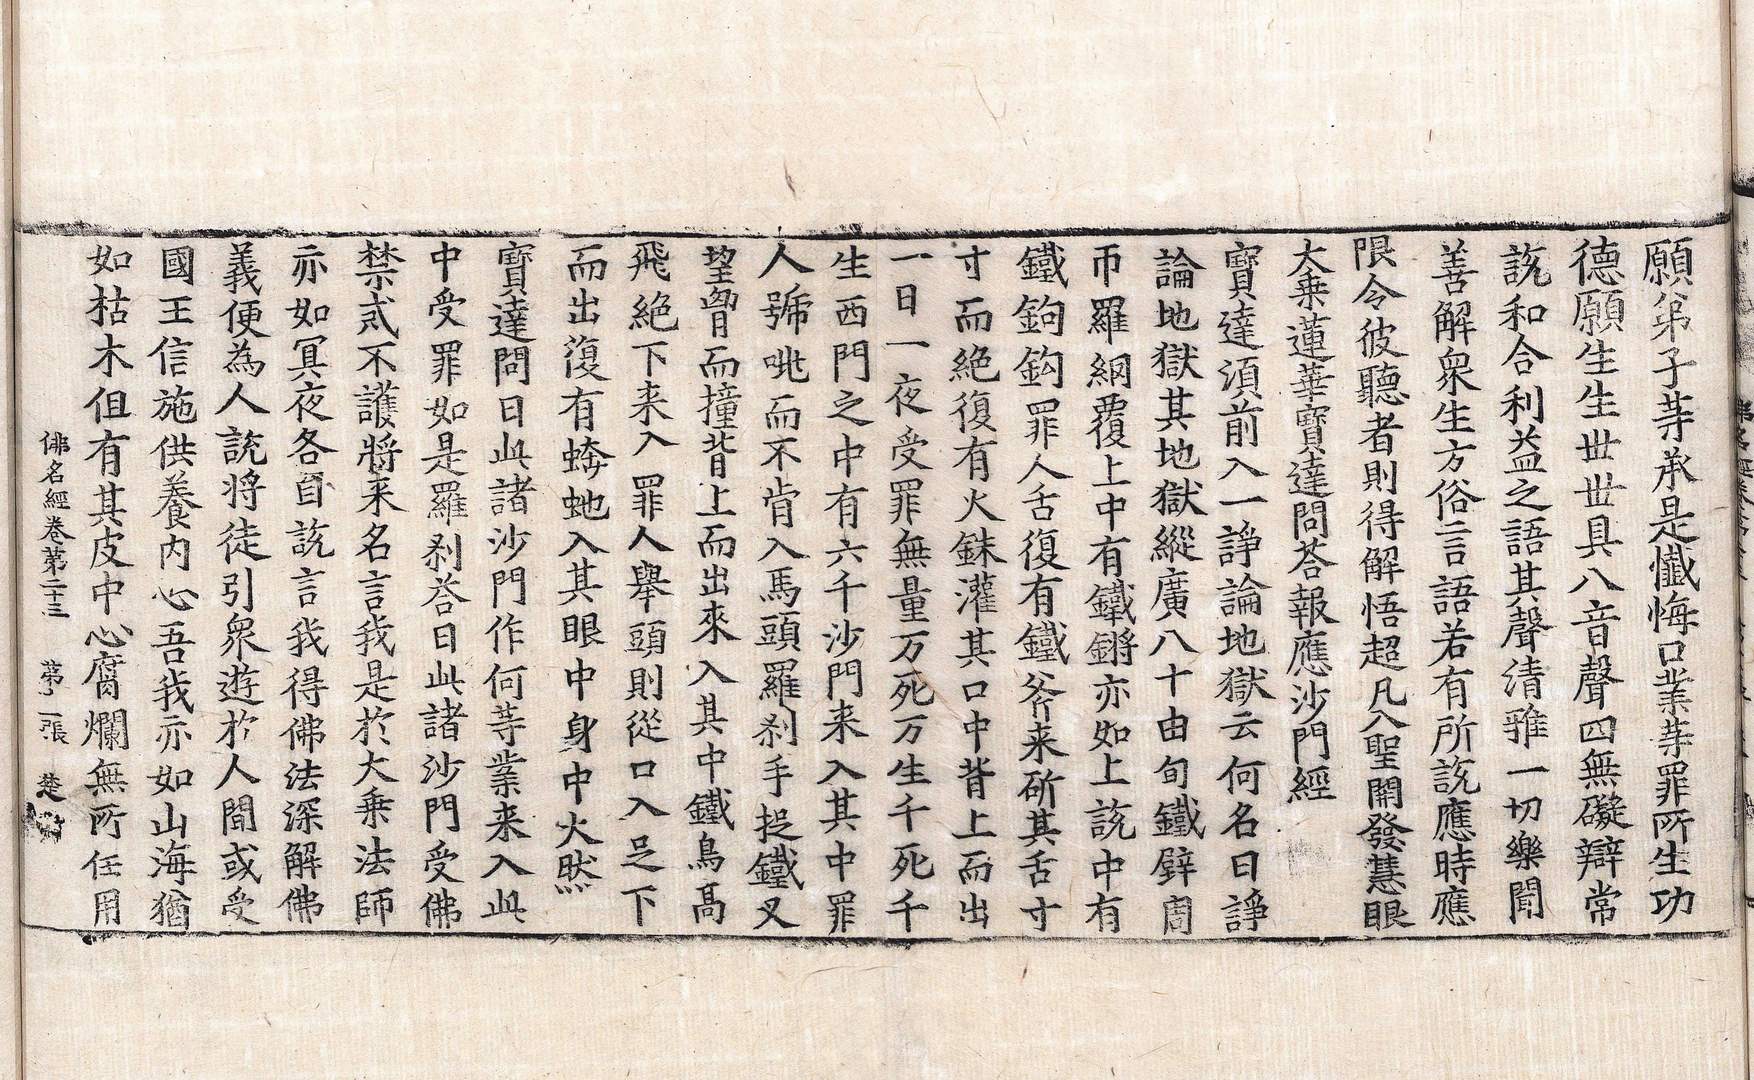 願弟子等承是懺悔口業等罪所生功
德願生生世世具八音聲四無礙辯常
說和合利益之語其聲清雅一切樂聞
善解衆生方俗言語若有所說應時應
限令彼聽者則得解悟超凡入聖開發慧眼
大乗蓮華寶達問荅報應沙門經
寶達湏前入一諍論地獄云何名曰諍
論地獄其地獄縱廣八十由旬鐵壁周
帀羅網覆上中有鐵鏘亦如上說中有
鐵鉤鉤罪人舌復有鐵斧来斫其舌寸
寸而絕復有火銖灌其口中背上而出
一日一夜受罪無量万死万生千死千
生西門之中有六千沙門来入其中罪
人號咷而不肯入馬頭羅刹手捉鐵叉
望胷而撞背上而出來入其中鐵鳥髙
飛絕下来入罪人舉頭則從口入足下
而出復有蜂虵入其眼中身中火然
寶達問曰此諸沙門作何等業来入此
中受罪如是羅刹荅曰此諸沙門受佛
禁戒不護將来名言我是於大乗法師
亦如冥夜各自說言我得佛法深解佛
義便為人說將徒引衆遊於人間或受
國王信施供養内心吾我亦如山海猶
如枯木但有其皮中心腐爛無所任用
佛名經卷第二十三 第 張 楚